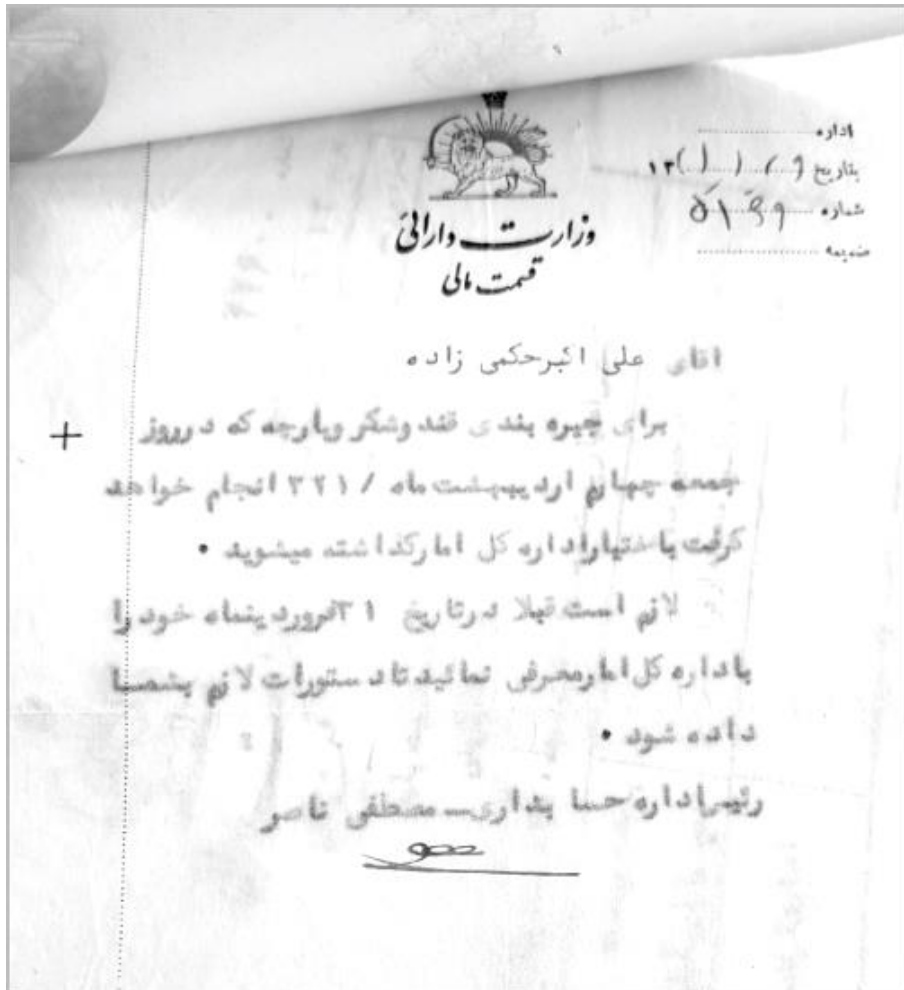 اداره
بتاریخ
شماره
ضمیمه
وزارت دارائی
قسمت مالی
اقای علی اکبرحکمی زاده
برای جیره بندی قند وشکر وپارچه که درروز
جمعه چهارم اردیبهشت ماه /۳۲۱ انجام خواهد
گرفت باختیاراداره کل امارگذاشته میشوید .
لازم است قبلا درتاریخ ۳۱فروردینماه خود را
باداره کل امارمعرفی نمائید تادستورات لازم بشما
داده شود .
رئیس اداره حسابداری_ مصطفی ناصر